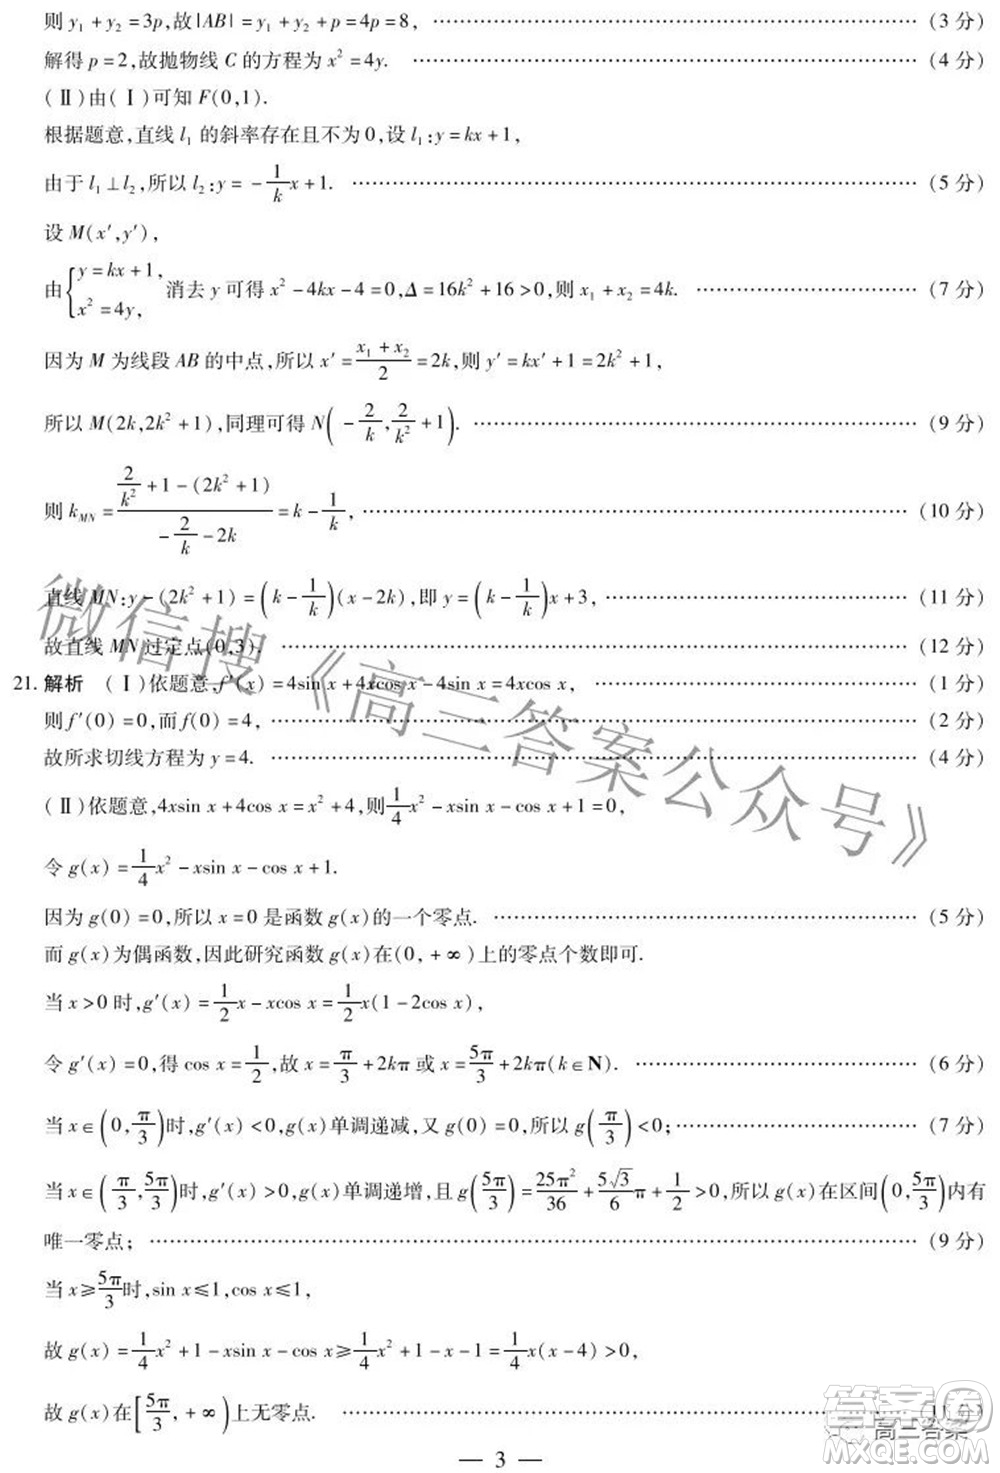 则 y₁+y₂=3p,故|AB|=y₁+y₂+p=4p=8, ……(3分)
解得 p=2,故抛物线 C 的方程为 x²=4y. ……(4分)
(Ⅱ)由(Ⅰ)可知 F(0,1).
根据题意,直线 l₁ 的斜率存在且不为 0,设 l₁:y=kx+1,
由于 l₁⊥l₂,所以 l₂:y=-1/k x+1. ……(5分)
设 M(x′,y′),
由{y=kx+1, x²=4y, 消去 y 可得 x²-4kx-4=0,Δ=16k²+16>0,则 x₁+x₂=4k. ……(7分)
因为 M 为线段 AB 的中点,所以 x′=(x₁+x₂)/2=2k,则 y′=kx′+1=2k²+1,
所以 M(2k,2k²+1),同理可得 N(-2/k,2/k²+1). ……(9分)
则 k_MN=(2/k²+1-(2k²+1))/(-2/k-2k)=k-1/k, ……(10分)
直线 MN:y-(2k²+1)=(k-1/k)(x-2k),即 y=(k-1/k)x+3, ……(11分)
故直线 MN 过定点(0,3). ……(12分)
21.解析 (Ⅰ)依题意,f′(x)=4sin x+4xcos x-4sin x=4xcos x, ……(1分)
则 f′(0)=0,而 f(0)=4, ……(2分)
故所求切线方程为 y=4. ……(4分)
(Ⅱ)依题意,4xsin x+4cos x=x²+4,则1/4x²-xsin x-cos x+1=0,
令 g(x)=1/4x²-xsin x-cos x+1.
因为 g(0)=0,所以 x=0 是函数 g(x)的一个零点. ……(5分)
而 g(x)为偶函数,因此研究函数 g(x)在(0,+∞)上的零点个数即可.
当 x>0 时,g′(x)=1/2x-xcos x=1/2x(1-2cos x),
令 g′(x)=0,得 cos x=1/2,故 x=π/3+2kπ 或 x=5π/3+2kπ(k∈N). ……(6分)
当 x∈(0,π/3)时,g′(x)<0,g(x)单调递减,又 g(0)=0,所以 g(π/3)<0; ……(7分)
当 x∈(π/3,5π/3)时,g′(x)>0,g(x)单调递增,且 g(5π/3)=25π²/36+5√3/6π+1/2>0,所以 g(x)在区间(0,5π/3)内有
唯一零点; ……(9分)
当 x≥5π/3时,sin x≤1,cos x≤1,
故 g(x)=1/4x²+1-xsin x-cos x≥1/4x²+1-x-1=1/4x(x-4)>0,
故 g(x)在[5π/3,+∞)上无零点. ……(11分)
— 3 —
微信搜《高三答案公众号》
答案圈
高三答案
MXQE.COM